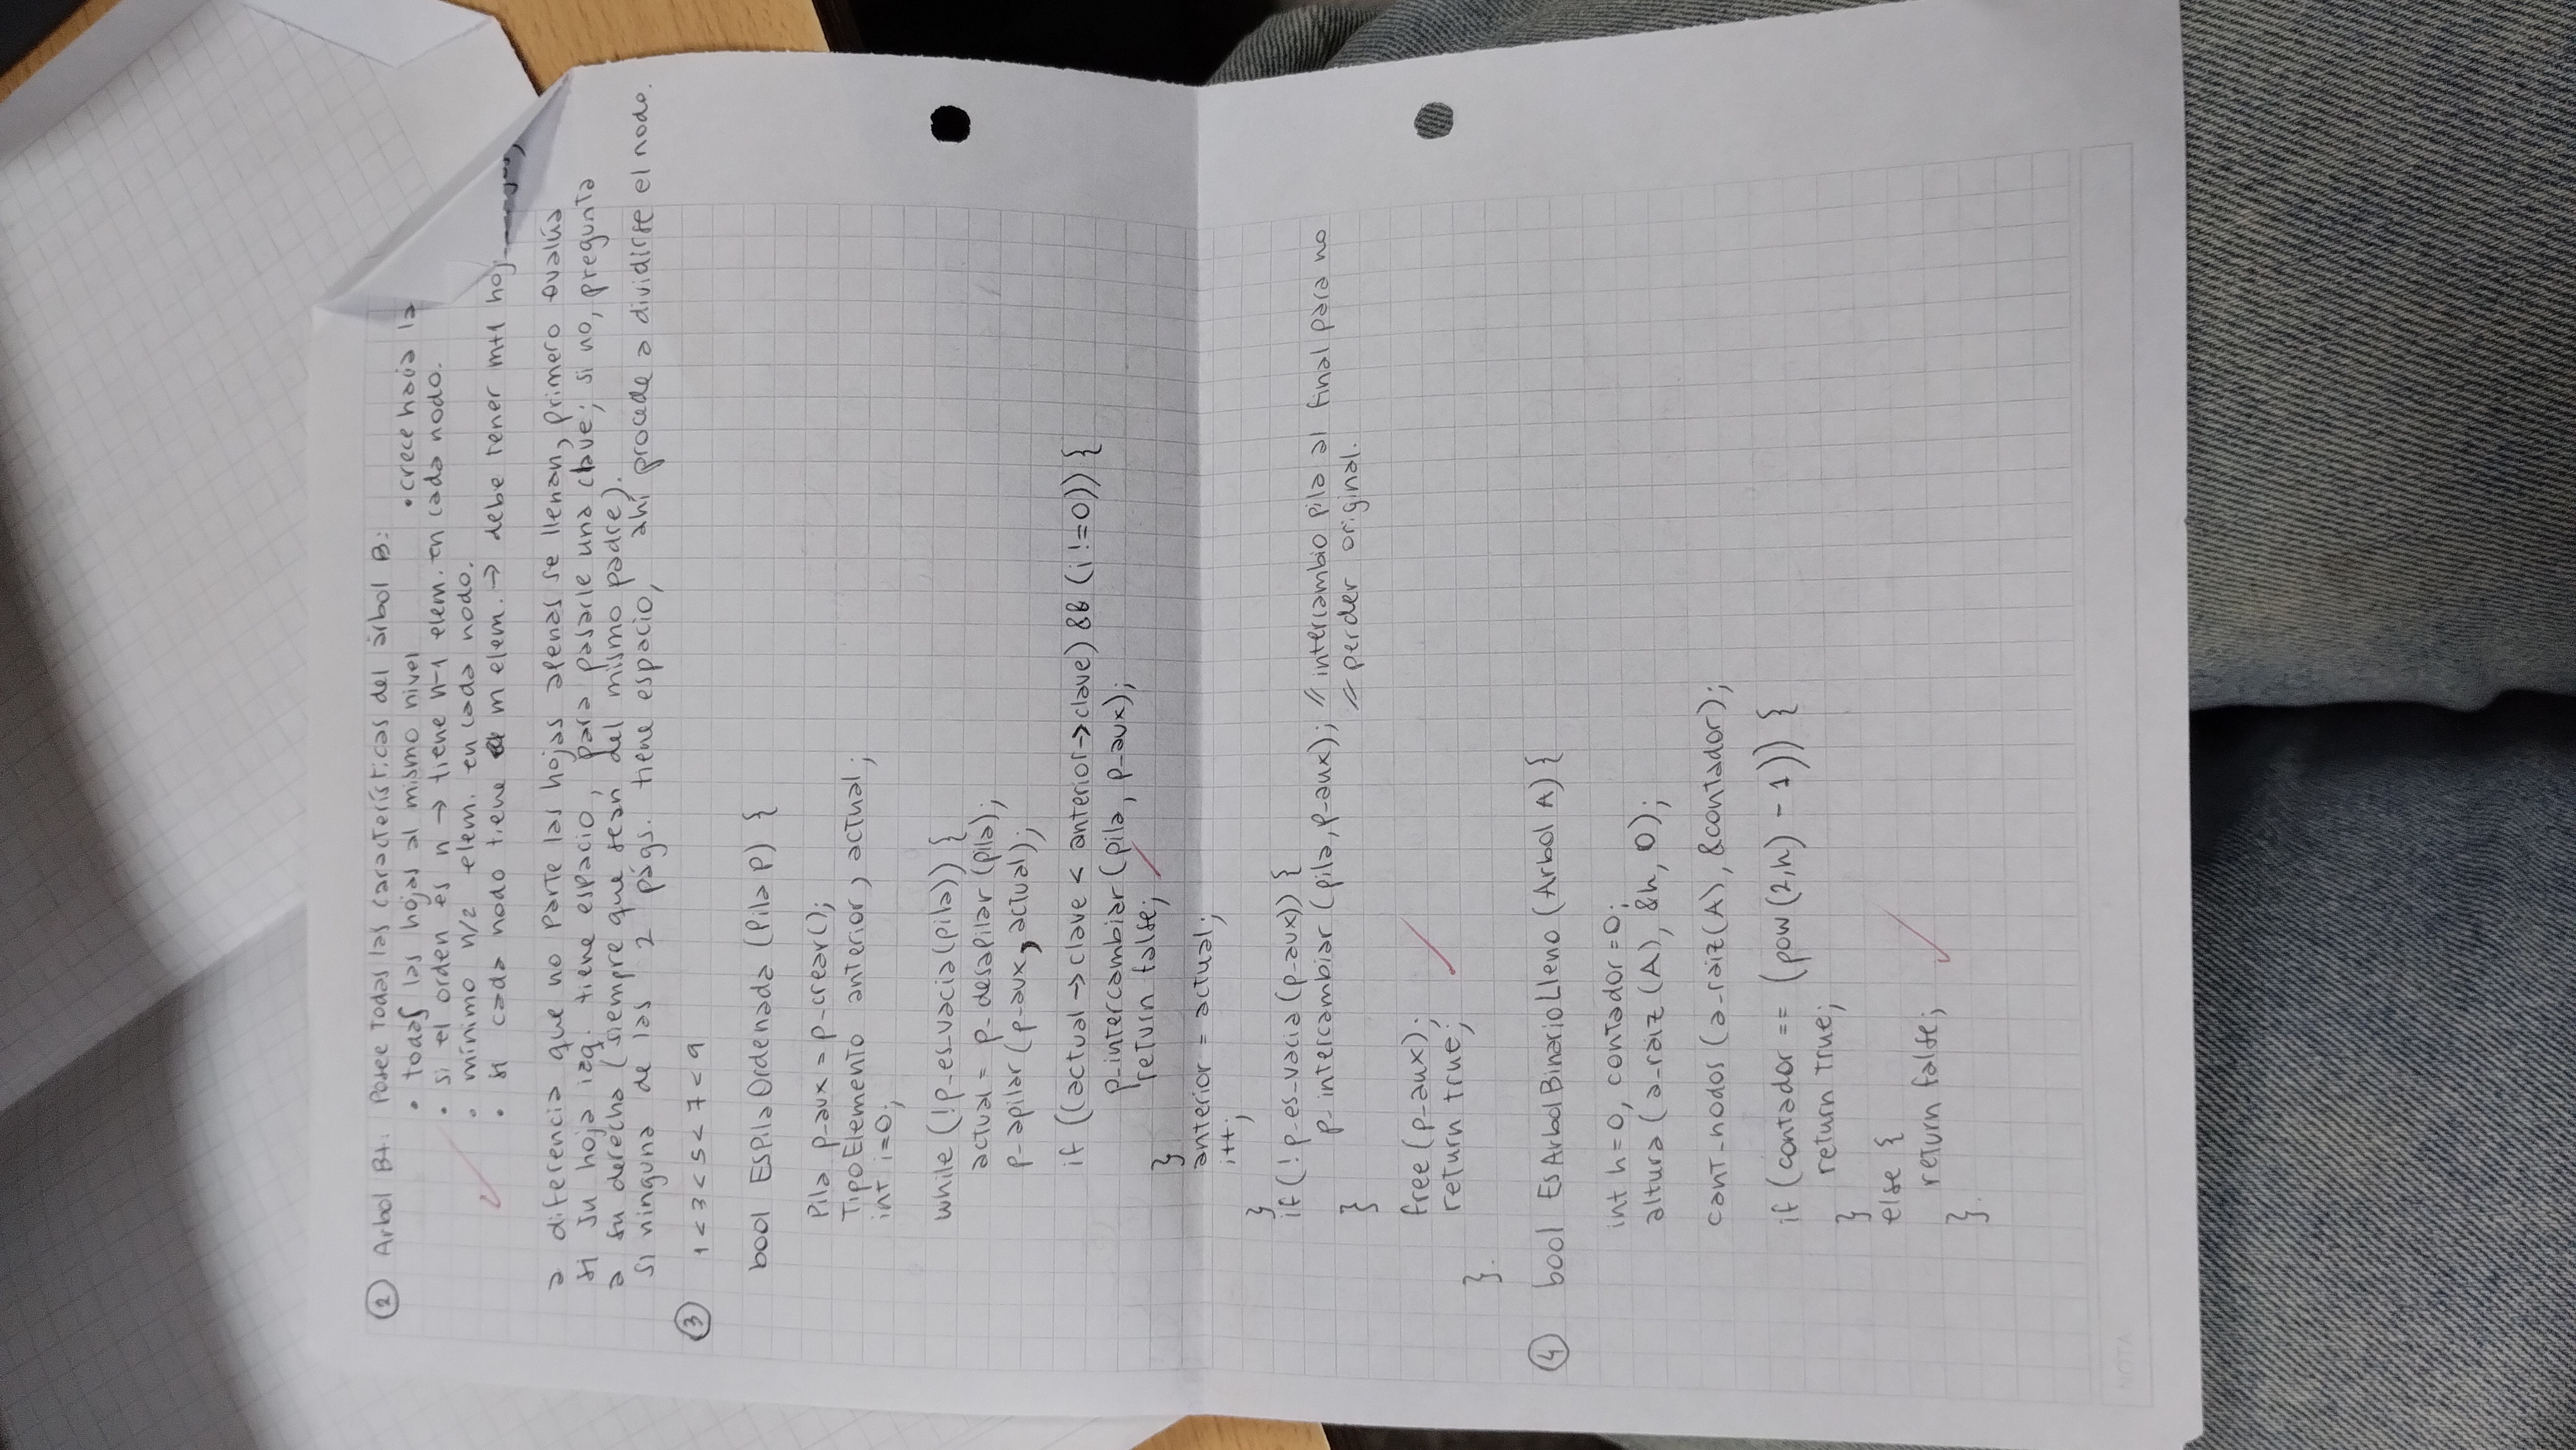 ② Arbol B+: Posee todas las características del árbol B:
• todas las hojas al mismo nivel • crece hacia la
• si el orden es n → tiene n-1 elem. en cada nodo.
• mínimo n/2 elem. en cada nodo.
• si cada nodo tiene m elem. → debe tener m+1
a diferencia que no parte las hojas apenas se llenan, primero evalúa
si su hoja izq. tiene espacio, para pasarle una clave; si no, pregunta
a su derecha (siempre que sean del mismo padre).
Si ninguna de las 2 págs. tiene espacio, ahí procede a dividirse el nodo.
③ 1 < 3 < 5 < 7 < 9
bool EsPilaOrdenada (Pila P) {
Pila p_aux = p_crear();
TipoElemento anterior, actual;
int i=0;
while (!p_es_vacia(pila)) {
actual = p_desapilar (pila);
p_apilar (p_aux, actual);
if ((actual → clave < anterior → clave) && (i != 0)) {
p_intercambiar (pila, p_aux);
return false;
}
anterior = actual;
i++;
}
if (! p_es_vacia (p_aux)) {
p_intercambiar (pila, p_aux); // intercambio pila al final para no
// perder original.
}
free (p_aux);
return true;
}.
④ bool EsArbolBinarioLleno (Arbol A) {
int h=0, contador=0;
altura (a_raiz (A), &h, 0);
cant_nodos (a_raiz(A), &contador);
if (contador == (pow (2,h) - 1)) {
return true;
}
else {
return false;
}.
NOTA